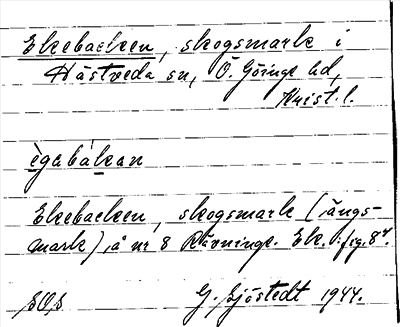 Ekebacken, skogsmark i
Hästveda sn, Ö. Göinge hd,
Krist. l.
ègabákan
Ekebacken, skogsmark (ängs-
mark), å nr 8 Rävninge. Ek.
G. Sjöstedt 1944.